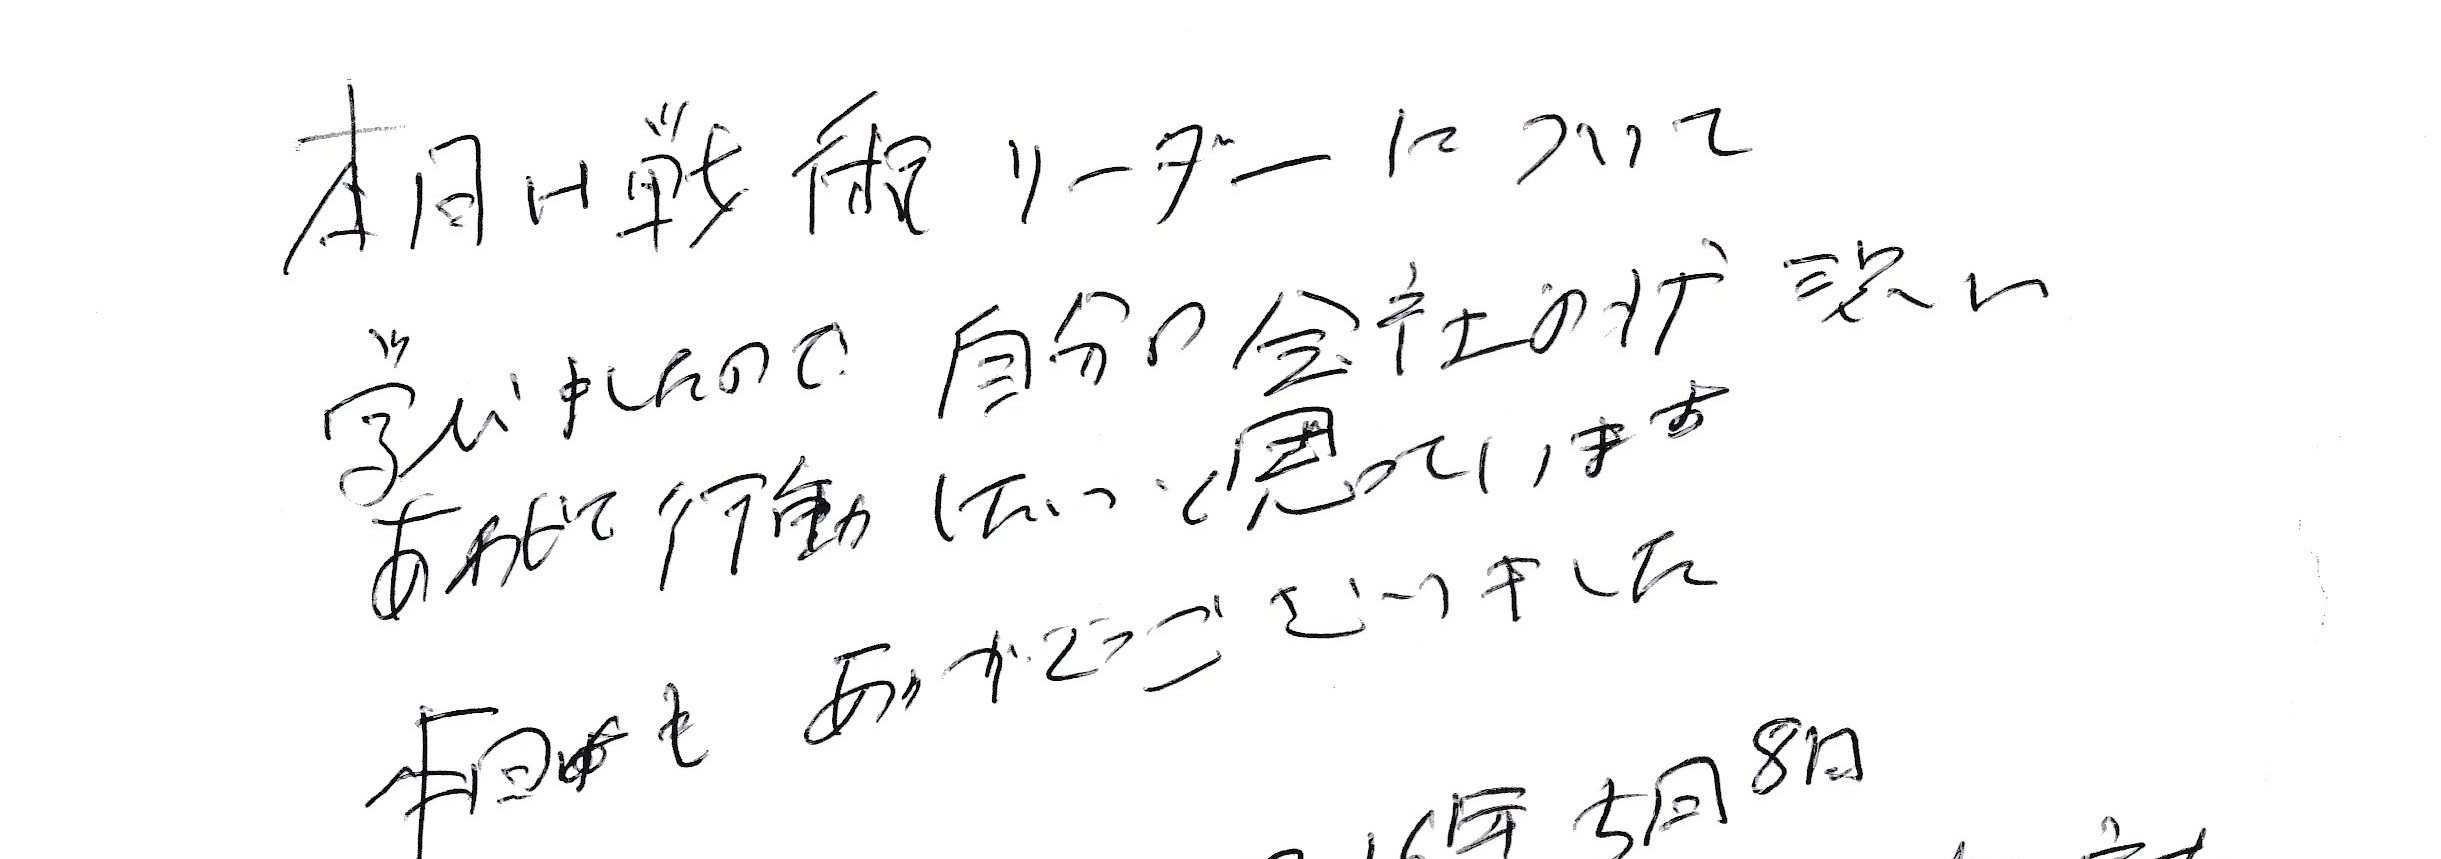 本日は戦術リーダーについて
学びましたので自分の会社の状況に
あわせて行動したいと思っています
本日もありがとうございました
16年5月8日